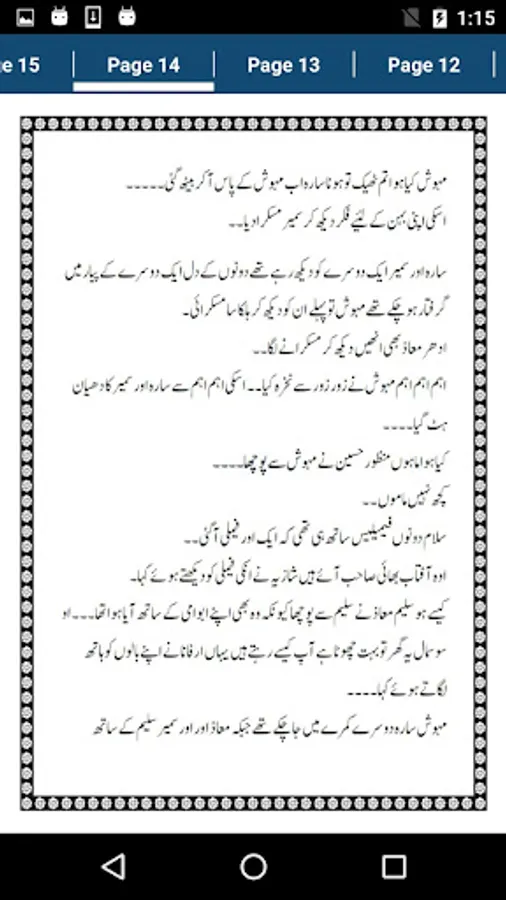 1:15
e 15
Page 14
Page 13
Page 12
مہوش کیا ہوا تم ٹھیک تو ہو نا سارہ اب مہوش کے پاس آ کر بیٹھ گئی۔۔۔۔۔
اسکی اپنی بہن کے لئیے فکر دیکھ کر سمیر مسکرا دیا۔۔
سارہ اور سمیر ایک دوسرے کو دیکھ رہے تھے دونوں کے دل ایک دوسرے کے پیار میں
گرفتار ہو چکے تھے مہوش تو پہلے ان کو دیکھ کر ہلکا سا مسکرائی۔
ادھر معاذ بھی انھیں دیکھ کر مسکرانے لگا۔۔
اہم اہم اہم مہوش نے زور زور سے نخرہ کیا۔۔ اسکی اہم اہم سے سارہ اور سمیر کا دھیان
ہٹ گیا۔۔۔۔
کیا ہوا ماہوں منظور حسین نے مہوش سے پوچھا۔۔۔۔
کچھ نہیں ماموں۔۔
سلام دونوں فیمیلیس ساتھ ہی تھی کہ ایک اور فیملی آ گئی۔۔
اوہ آفتاب بھائی صاحب آئے ہیں شازیہ نے انکی فیملی کو دیکھتے ہوئے کہا۔
کیسے ہو سلیم معاذ نے سلیم سے پوچھا کیونکہ وہ بھی اپنے ابو امی کے ساتھ آیا ہوا تھا۔۔۔ او
سو سمال یہ گھر تو بہت چھوٹا ہے آپ کیسے رہتے ہیں یہاں ارفانا نے اپنے بالوں کو ہاتھ
لگاتے ہوئے کہا۔۔۔۔
مہوش سارہ دوسرے کمرے میں جا چکے تھے جبکہ معاذ اور اور سمیر سلیم کے ساتھ